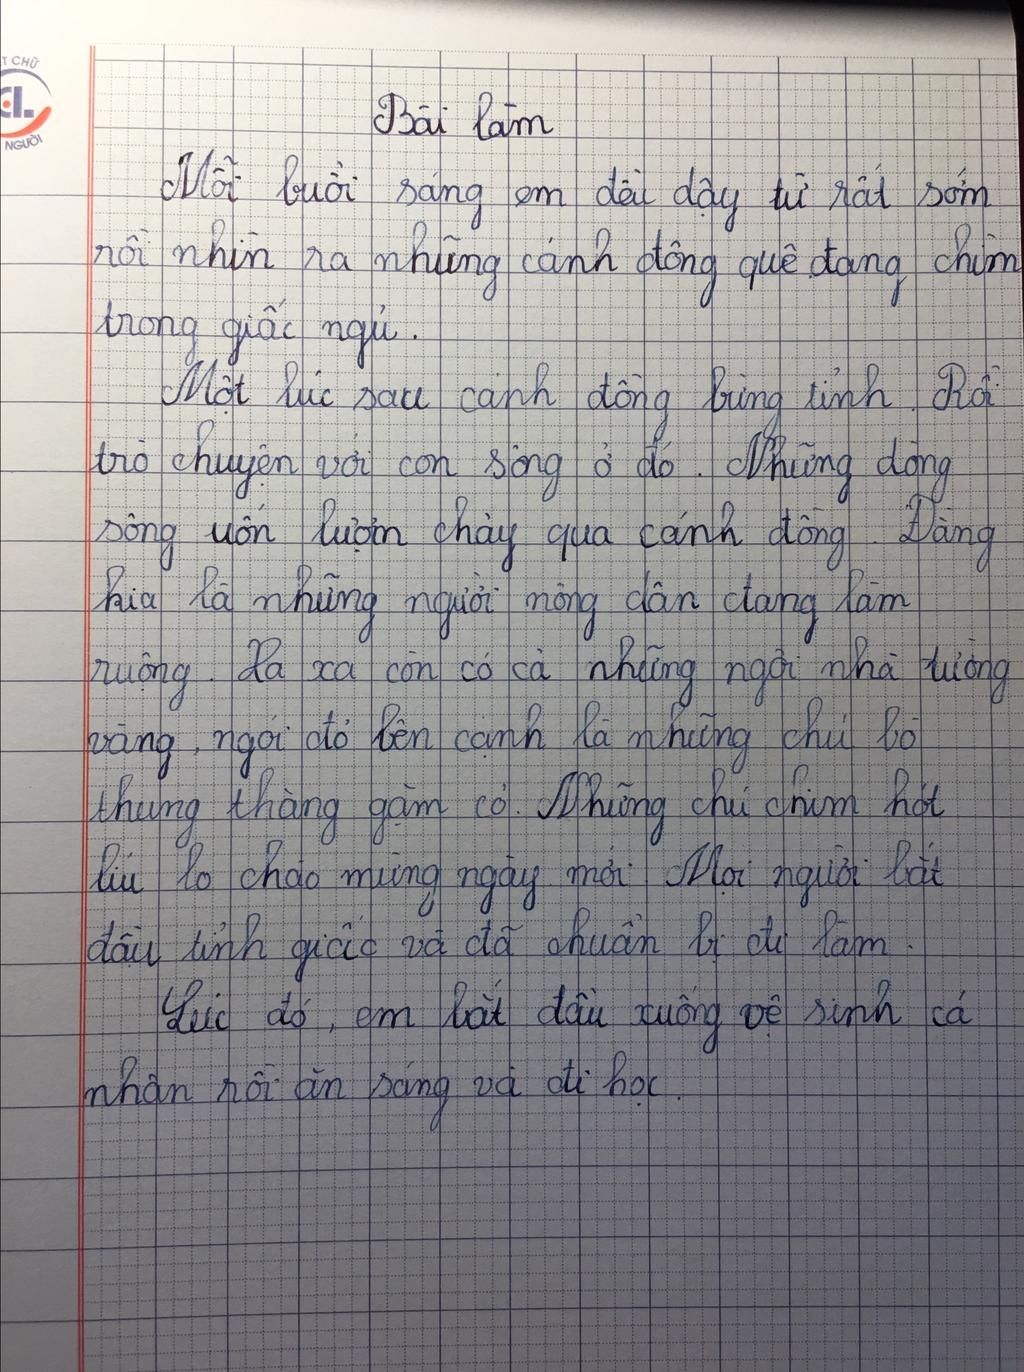 T CHỮ
CL
NGƯỜI
Bài làm
Mỗi buổi sáng em đều dậy từ rất sớm
rồi nhìn ra những cánh đồng quê đang chìm
trong giấc ngủ.
Một lúc sau cánh đồng bừng tỉnh. Rồi
trò chuyện với con sông ở đó. Những dòng
sông uốn lượn chảy qua cánh đồng. Đằng
kia là những người nông dân đang làm
ruộng. Xa xa còn có cả những ngôi nhà tường
vàng, ngói đỏ bên cạnh là những chú bò
thung thăng gặm cỏ. Những chú chim hót
líu lo chào mừng ngày mới. Mọi người bắt
đầu tỉnh giấc và đã chuẩn bị đi làm.
Lúc đó, em bắt đầu xuống vệ sinh cá
nhân rồi ăn sáng và đi học.